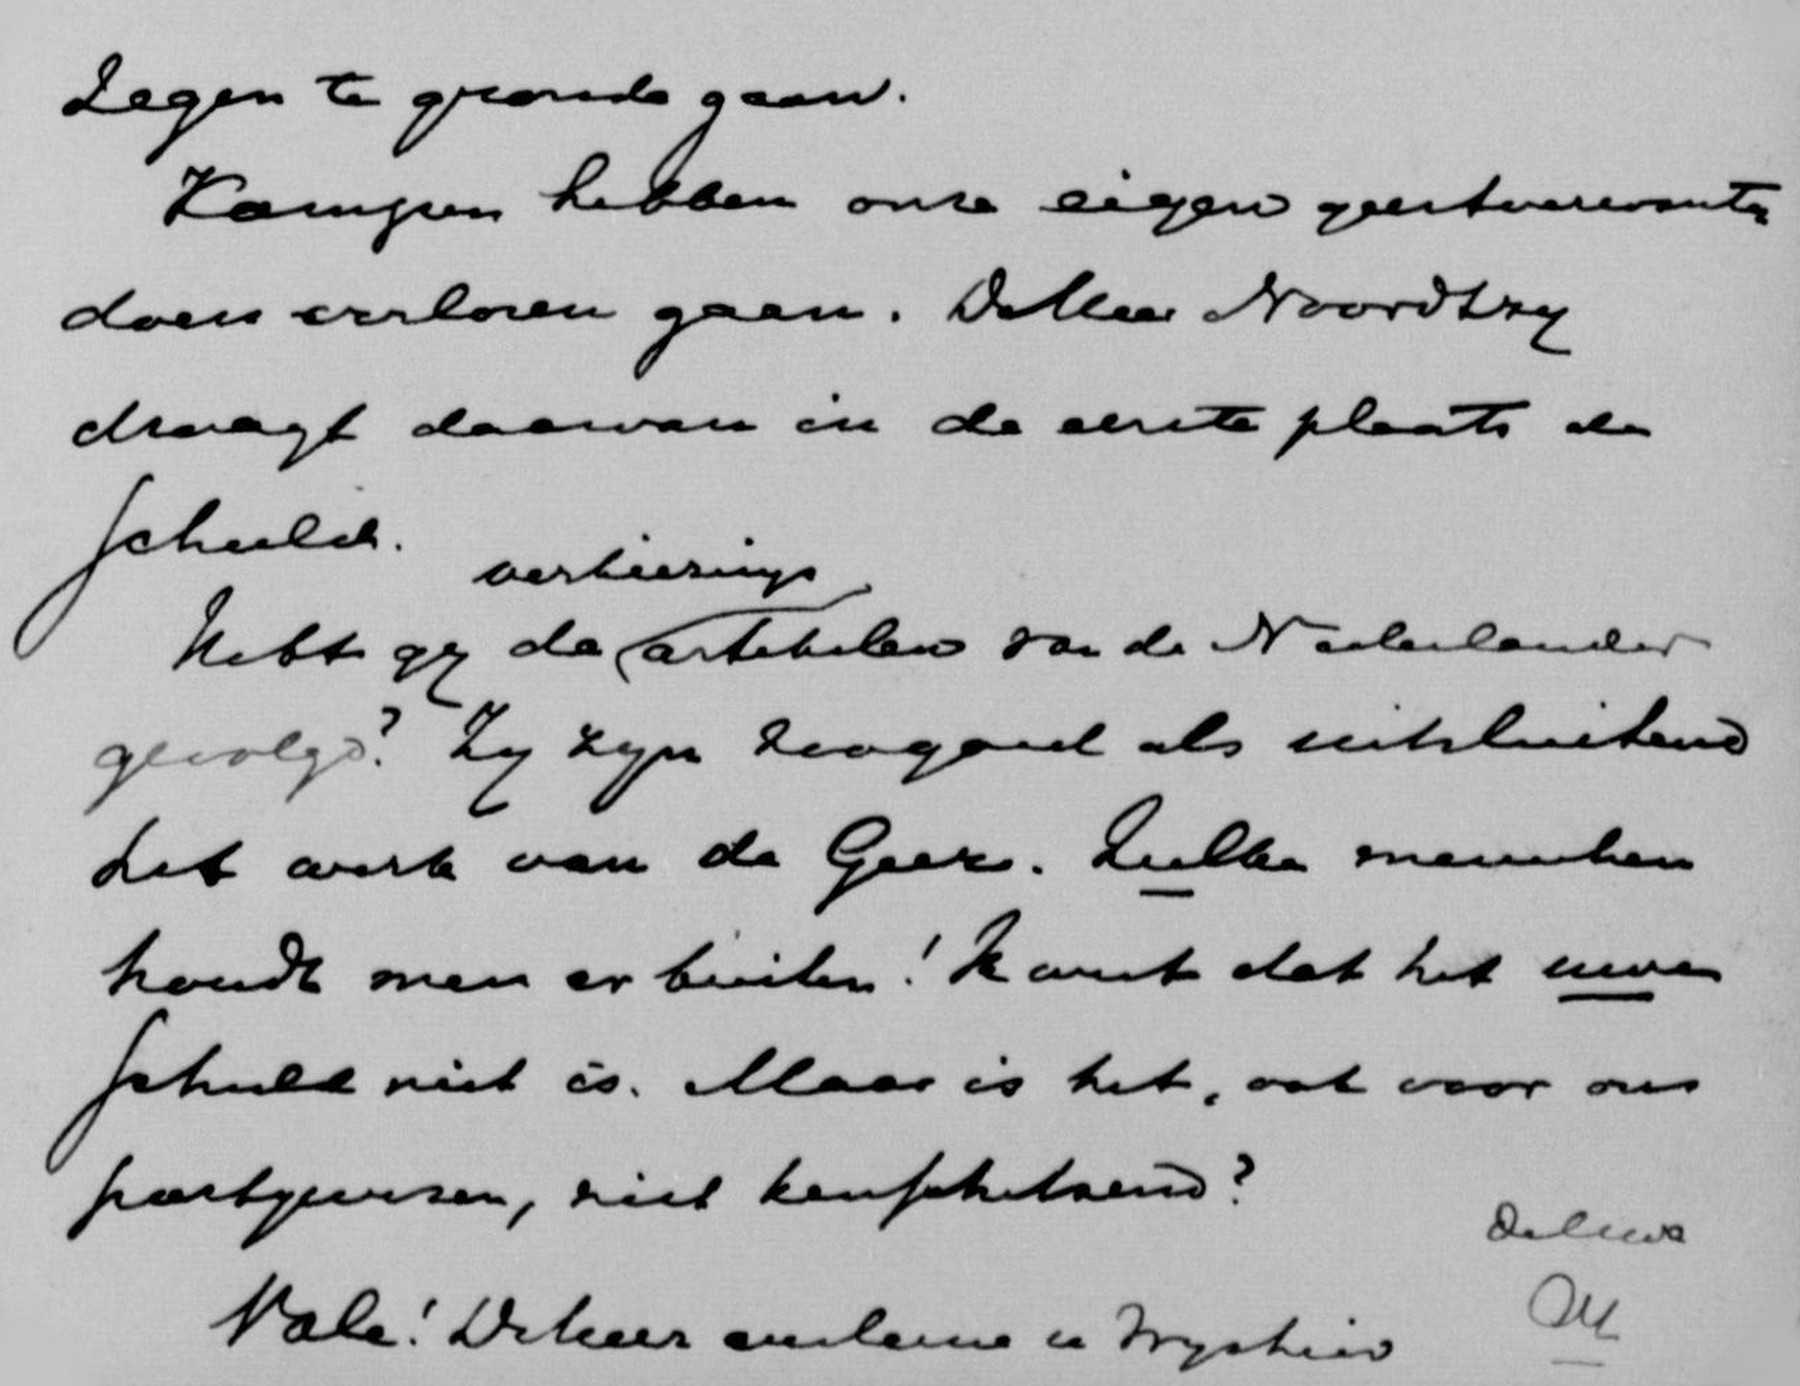 Zegen te gronde gaan.
Kampen hebben onze eigen geestverwanten
doen verloren gaan. De Heer Noordtzy
draagt daarvan in de eerste plaats de
schuld.
verkiezings
Hebt gy de artikelen van de Nederlander
gevolgd? Zy zyn zoogoed als uitsluitend
het werk van de Geer. Zulke menschen
houdt men er buiten! Ik weet dat het uwe
schuld niet is. Maar is het, ook voor ons
partywezen, niet kenschetsend?
de Uwe
Vale! De Heer verleene u wysheid